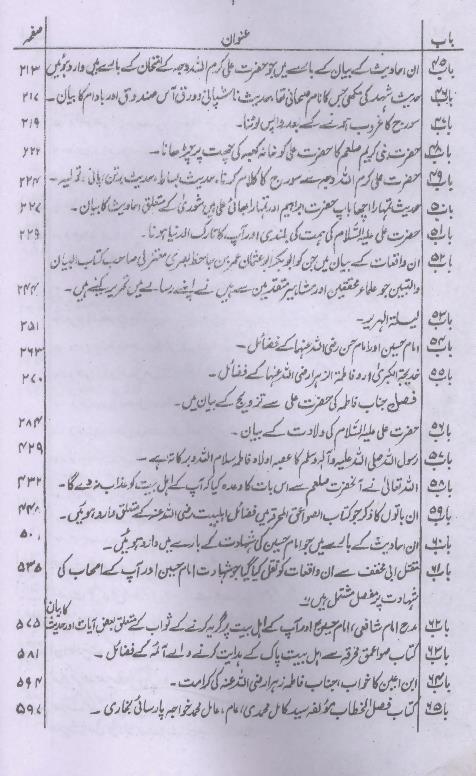 باب عنوان صفحہ
باب ۴۵ ان احادیث کے بیان کے بارے میں جو حضرت علی کرم اللہ وجہہ کے امتحان کے بارے میں وارد ہوئیں ۲۱۳
باب ۴۶ حدیث شہد کی مکھی جس کا نام صمحانی تھا، حدیث ناشپاتی و ورق آس صندوق اور بادام کا بیان۔ ۲۱۷
باب ۴۷ سورج کا غروب ہونے کے بعد واپس لوٹنا۔ ۲۱۹
باب ۴۸ حضرت نبی کریم صلعم کا حضرت علی کو خانہ کعبہ کی چھت پر چڑھانا۔ ۲۲۲
باب ۴۹ حضرت علی کرم اللہ وجہہ سے سورج کا کلام کرنا، حدیث بساط، حدیث برتن پانی، تولیہ۔ ۲۲۴
باب ۵۰ حدیث تمہارا اچھا باپ حضرت ابراہیم اور تمہارا بھائی علی ہیں شوریٰ کے متعلق احادیث کا بیان۔ ۲۲۷
باب ۵۱ حضرت علی علیہ السلام کی ہمت کی بلندی اور آپ کا تارک الدنیا ہونا۔ ۲۲۹
باب ۵۲ ان واقعات کے بیان میں جن کو ابو عثمان عمرو بن جاحظ بصری معتزلی صاحب کتاب البیان
والتبیین جو علماء محققین اور مشاہیر متقدمین سے ہیں نے اپنے رسالے میں تحریر کئے ہیں۔ ۲۴۴
باب ۵۳ لیلۃ الہریر۔ ۲۵۱
باب ۵۴ امام حسین اور امام حسن رضی اللہ عنہما کے فضائل۔ ۲۶۳
باب ۵۵ خدیجۃ الکبریٰ اور فاطمۃ الزہرا رضی اللہ عنہا کے فضائل۔ ۲۷۰
فصل جناب فاطمہ کی حضرت علی سے تزویج کے بیان میں۔
باب ۵۶ حضرت علی علیہ السلام کی ولادت کے بیان۔ ۲۸۴
باب ۵۷ رسول اللہ صلی اللہ علیہ وآلہ وسلم کا عصبہ اولاد فاطمہ سلام اللہ و برکاتہ ہے۔ ۴۲۹
باب ۵۸ اللہ تعالیٰ نے آنحضرت صلعم سے اس بات کا وعدہ کیا کہ آپ کے اہل بیت کو عذاب نہ دے گا۔ ۴۳۲
باب ۵۹ ان باتوں کا ذکر جو کتاب الصواعق المحرقہ میں فضائل اہلبیت رضی اللہ عنہم کے متعلق وارد ہوئیں۔ ۴۴۸
باب ۶۰ ان احادیث کے بارے میں جو امام حسین کی شہادت کے بارے میں وارد ہوئیں۔ ۵۰۱
باب ۶۱ مقتل ابی مخنف سے ان واقعات کو نقل کیا گیا جو شہادت امام حسین اور آپ کے اصحاب کی ۵۳۵
شہادت پر مفصل مشتمل ہیں۔
باب ۶۲ مدح امام شافعی، امام حسین اور آپ کے اہل بیت پر گریہ کرنے کے ثواب کے متعلق بعض آیات اور حدیث کا بیان ۵۷۵
باب ۶۳ کتاب صواعق محرقہ سے اہل بیت پاک کے ہدایت کرنے والے آئمہ کے فضائل۔ ۵۸۱
باب ۶۴ ابن اعین کا خواب، جناب فاطمہ زہرا رضی اللہ عنہا کی کرامت۔ ۵۹۴
باب ۶۵ کتاب فصل الخطاب مؤلفہ سید کامل محمدی، امام، عامل محمد خواجہ پارسائی بخاری۔ ۵۹۷